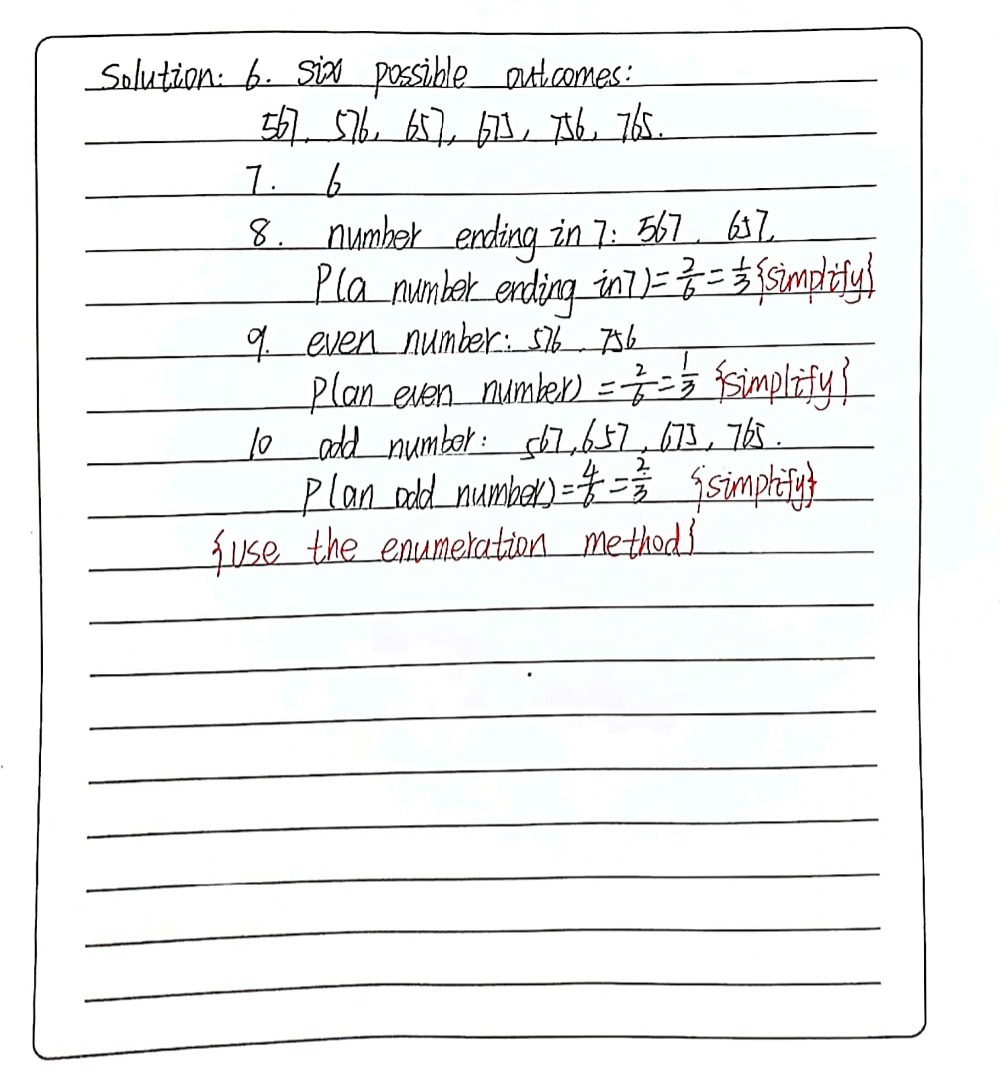 Solution: 6. six possible outcomes:
567, 576, 657, 675, 756, 765.
7. 6
8. number ending in 7: 567, 657,
P(a number ending in 7) = 2/6 = 1/3 {simplify}
9. even number: 576, 756
P(an even number) = 2/6 = 1/3 {simplify}
10 odd number: 567, 657, 675, 765.
P(an odd number) = 4/6 = 2/3 {simplify}
{use the enumeration method}